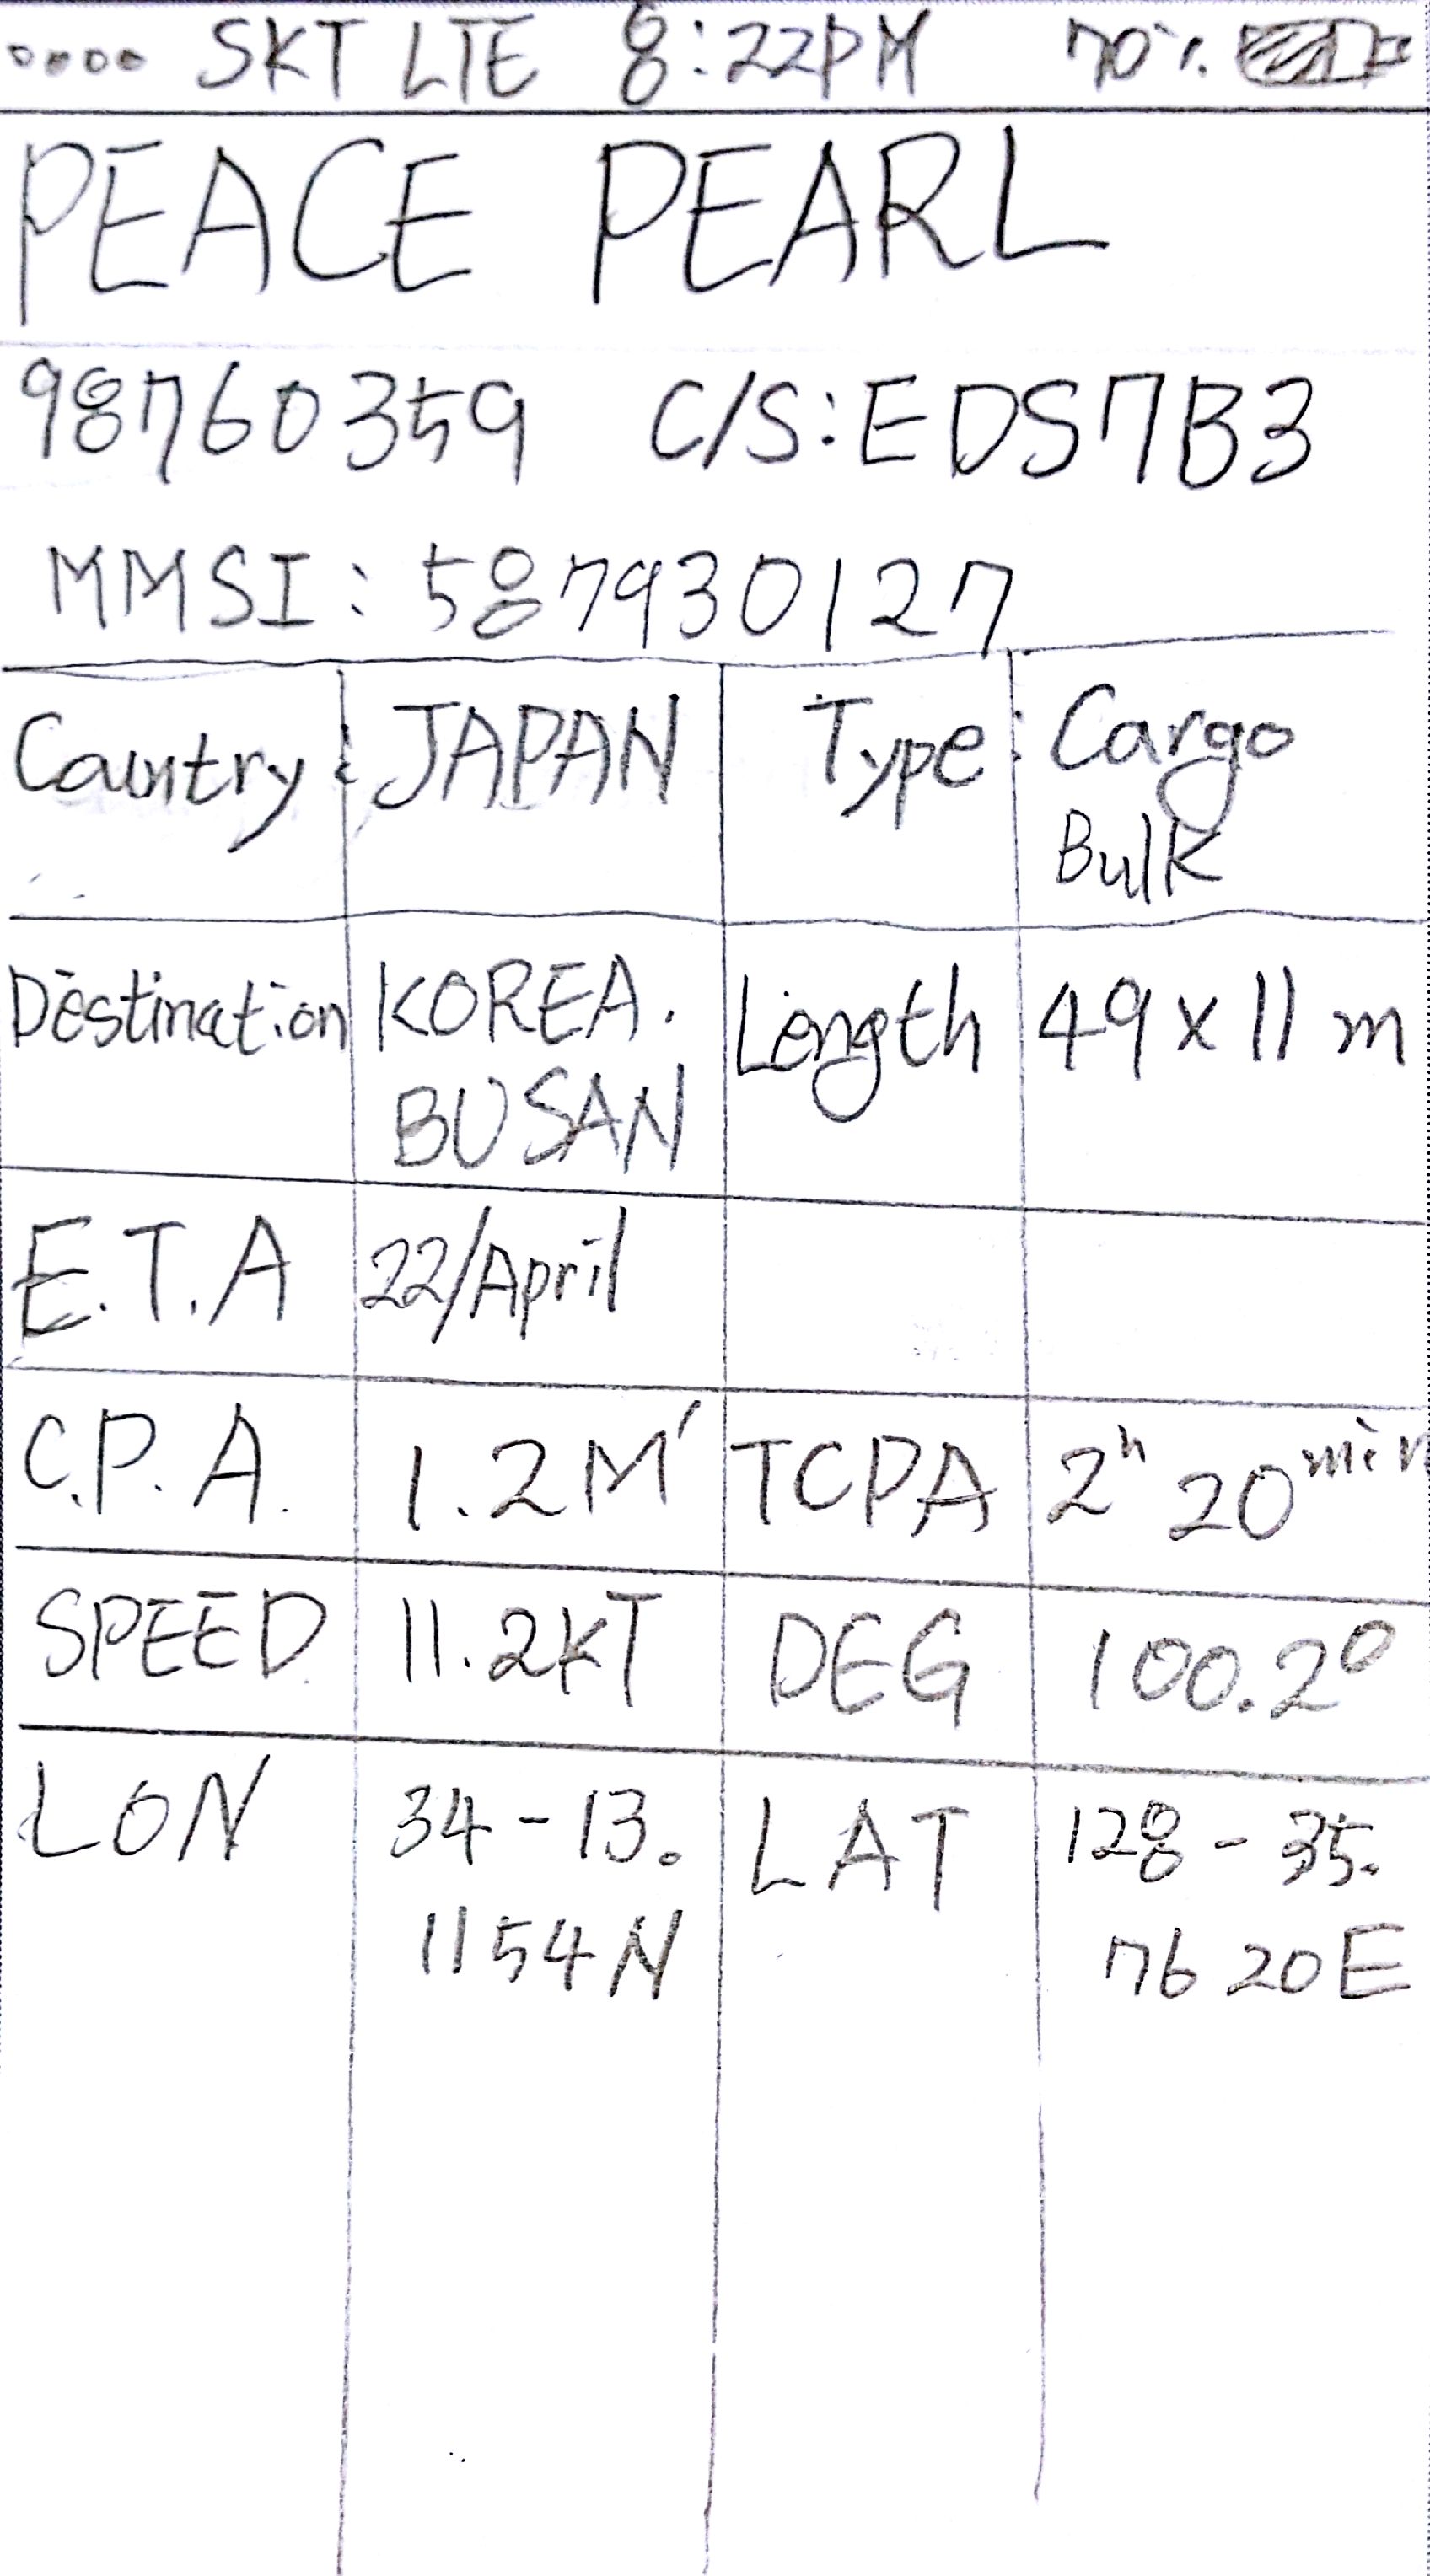 SKT LTE 8:22PM 70%
PEACE PEARL
98760359 C/S:EDS7B3
MMSI: 587930127
Country: JAPAN Type: Cargo
Bulk
Destination KOREA. Length 49x11m
BUSAN
E.T.A 22/April
C.P.A. 1.2M' TCPA 2h 20min
SPEED 11.2KT DEG 100.2°
LON 34-13. LAT 128-35.
1154N 7620E